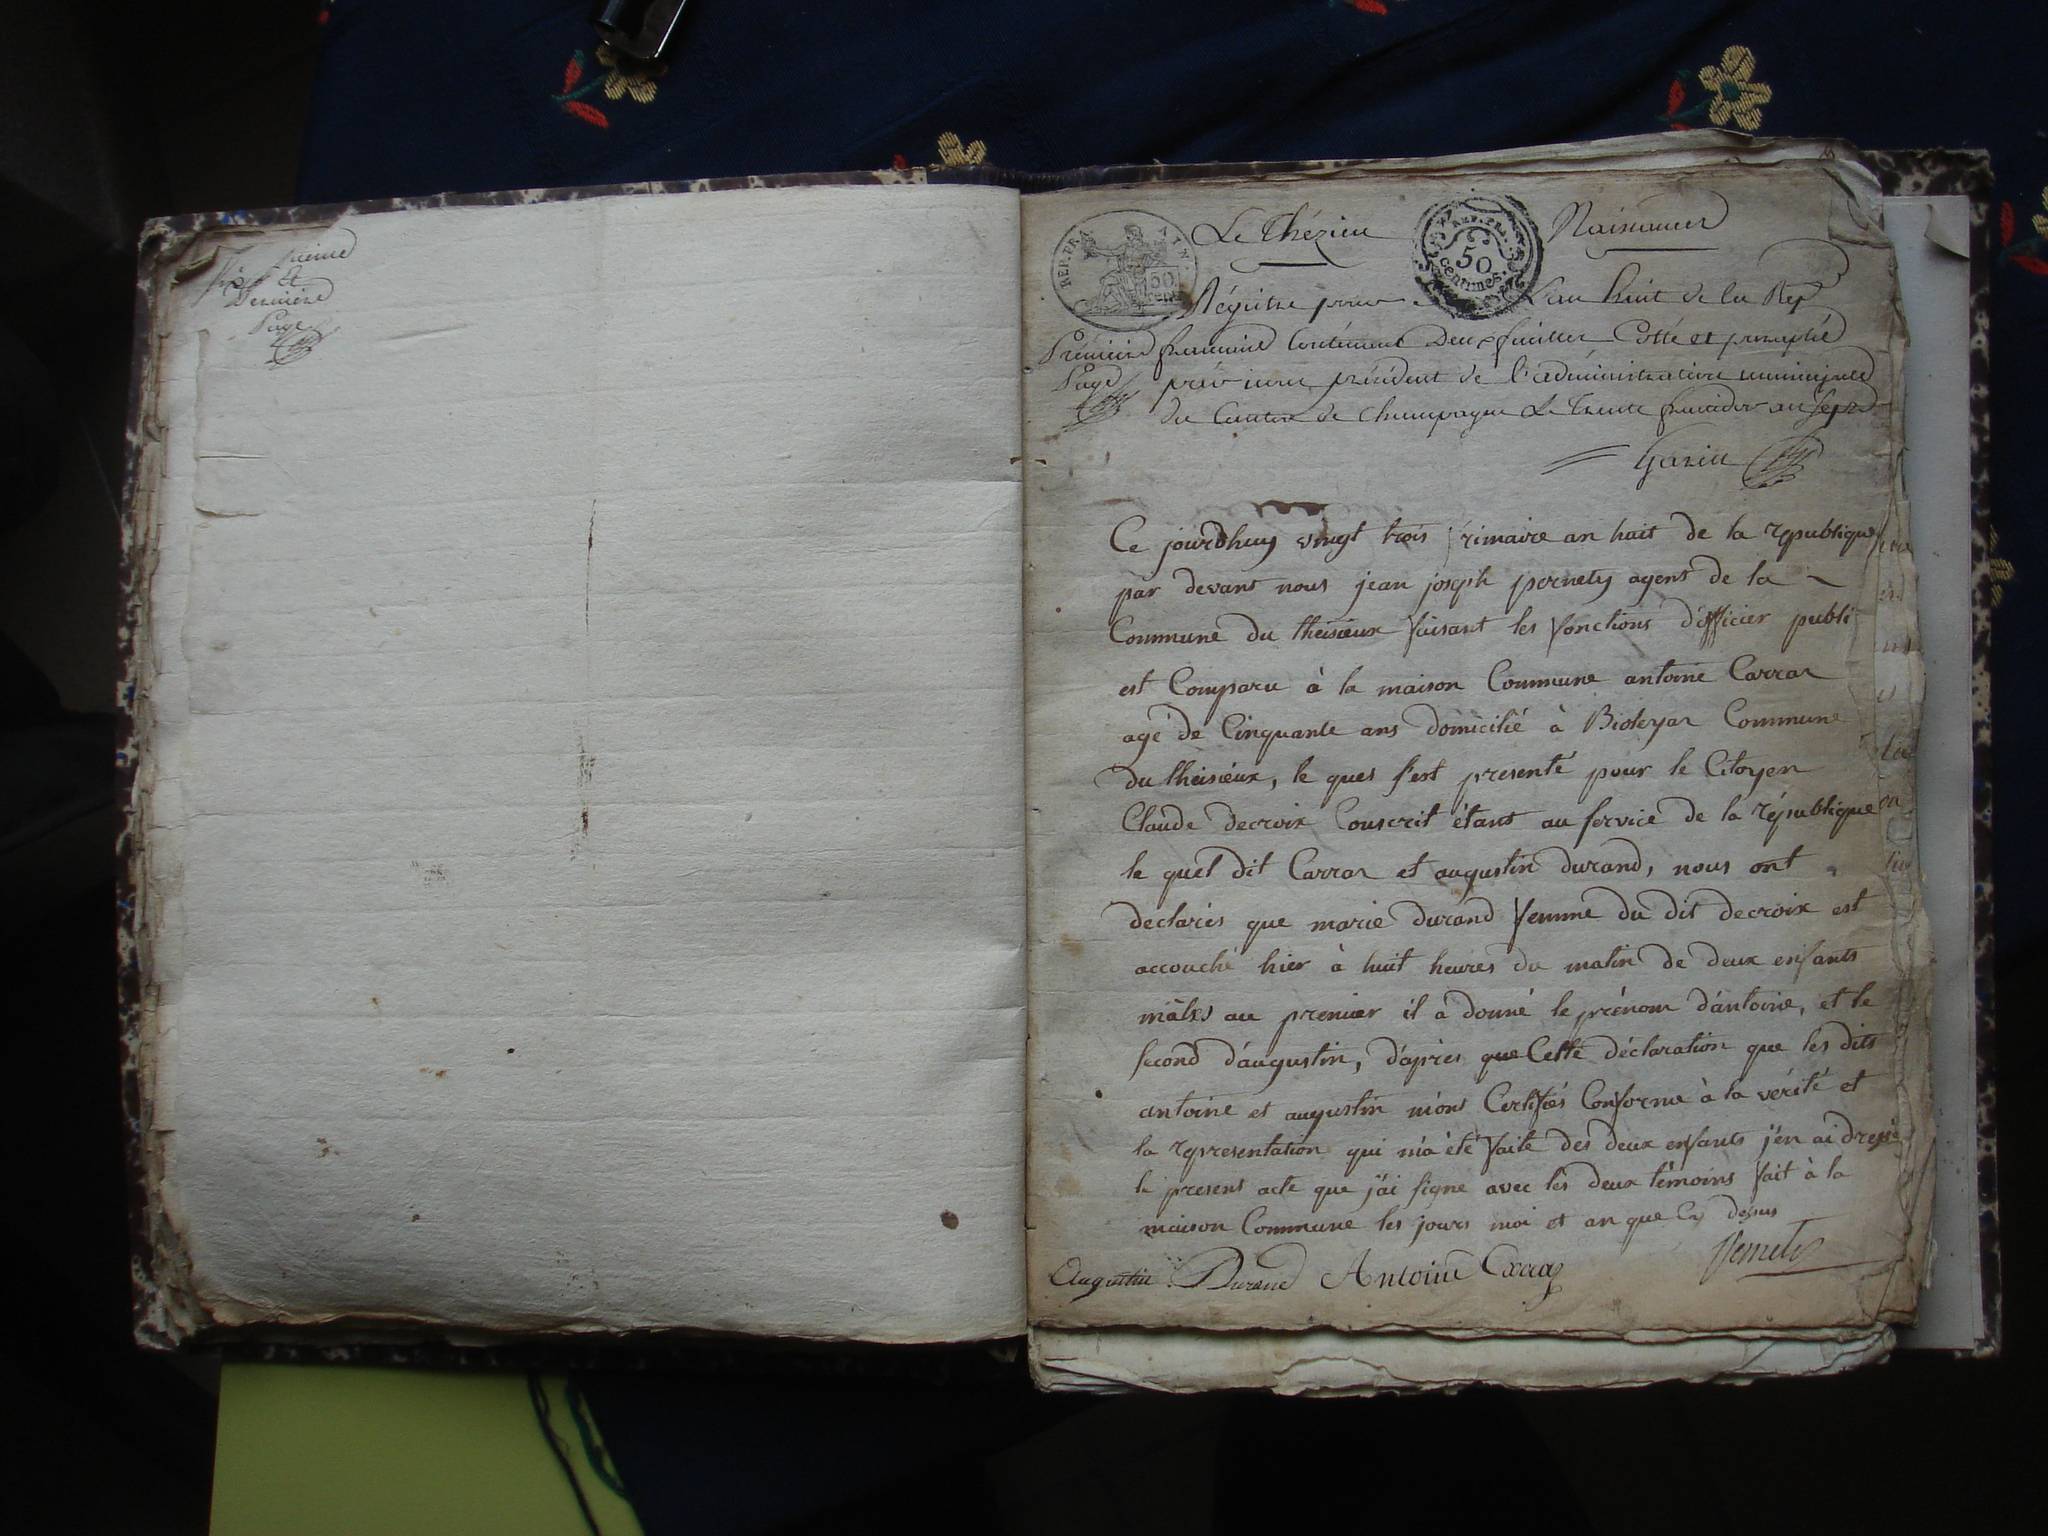 et
Dernière
Page
Le Thézieu Naissances
REP. FRA. AIN.
REP. FRA.
50
centimes.
Régistre pour L'an huit de la Rep
Prémiere francaise Contenant Deux feuillet Cotté et paraphé
Page par nous président de l'administration municipale
du Canton de Champagne Le Trente fructidor an Sept
Garin
Ce jourdhuy vingt trois frimaire an huit de la republique
par devant nous jean joseph pernety agent de la
Commune du theisieux faisant les fonctions d'officier publi
est Comparu à la maison Commune antoine Carraz
agé de Cinquante ans domicilié à Bioleyaz Commune
du theisieux, le quel s'est presenté pour le Citoyen
Claude decroix Conscrit étant au service de la république
le quel dit Carraz et augustin durand, nous ont
declarés que marie durand femme du dit decroix est
accouché hier à huit heures du matin de deux enfants
mâles au premier il à donné le prénom d'antoine, et le
second d'augustin, d'après que Cette déclaration que les dits
antoine et augustin m'ont Certifiés Conforme à la vérité et
la representation qui m'a été faite des deux enfants j'en ai dressé
le present acte que j'ai signé avec les deux témoins fait à la
maison Commune les jours moi et an que Cy dessus
Augustin Durand Antoine Carraz Pernety